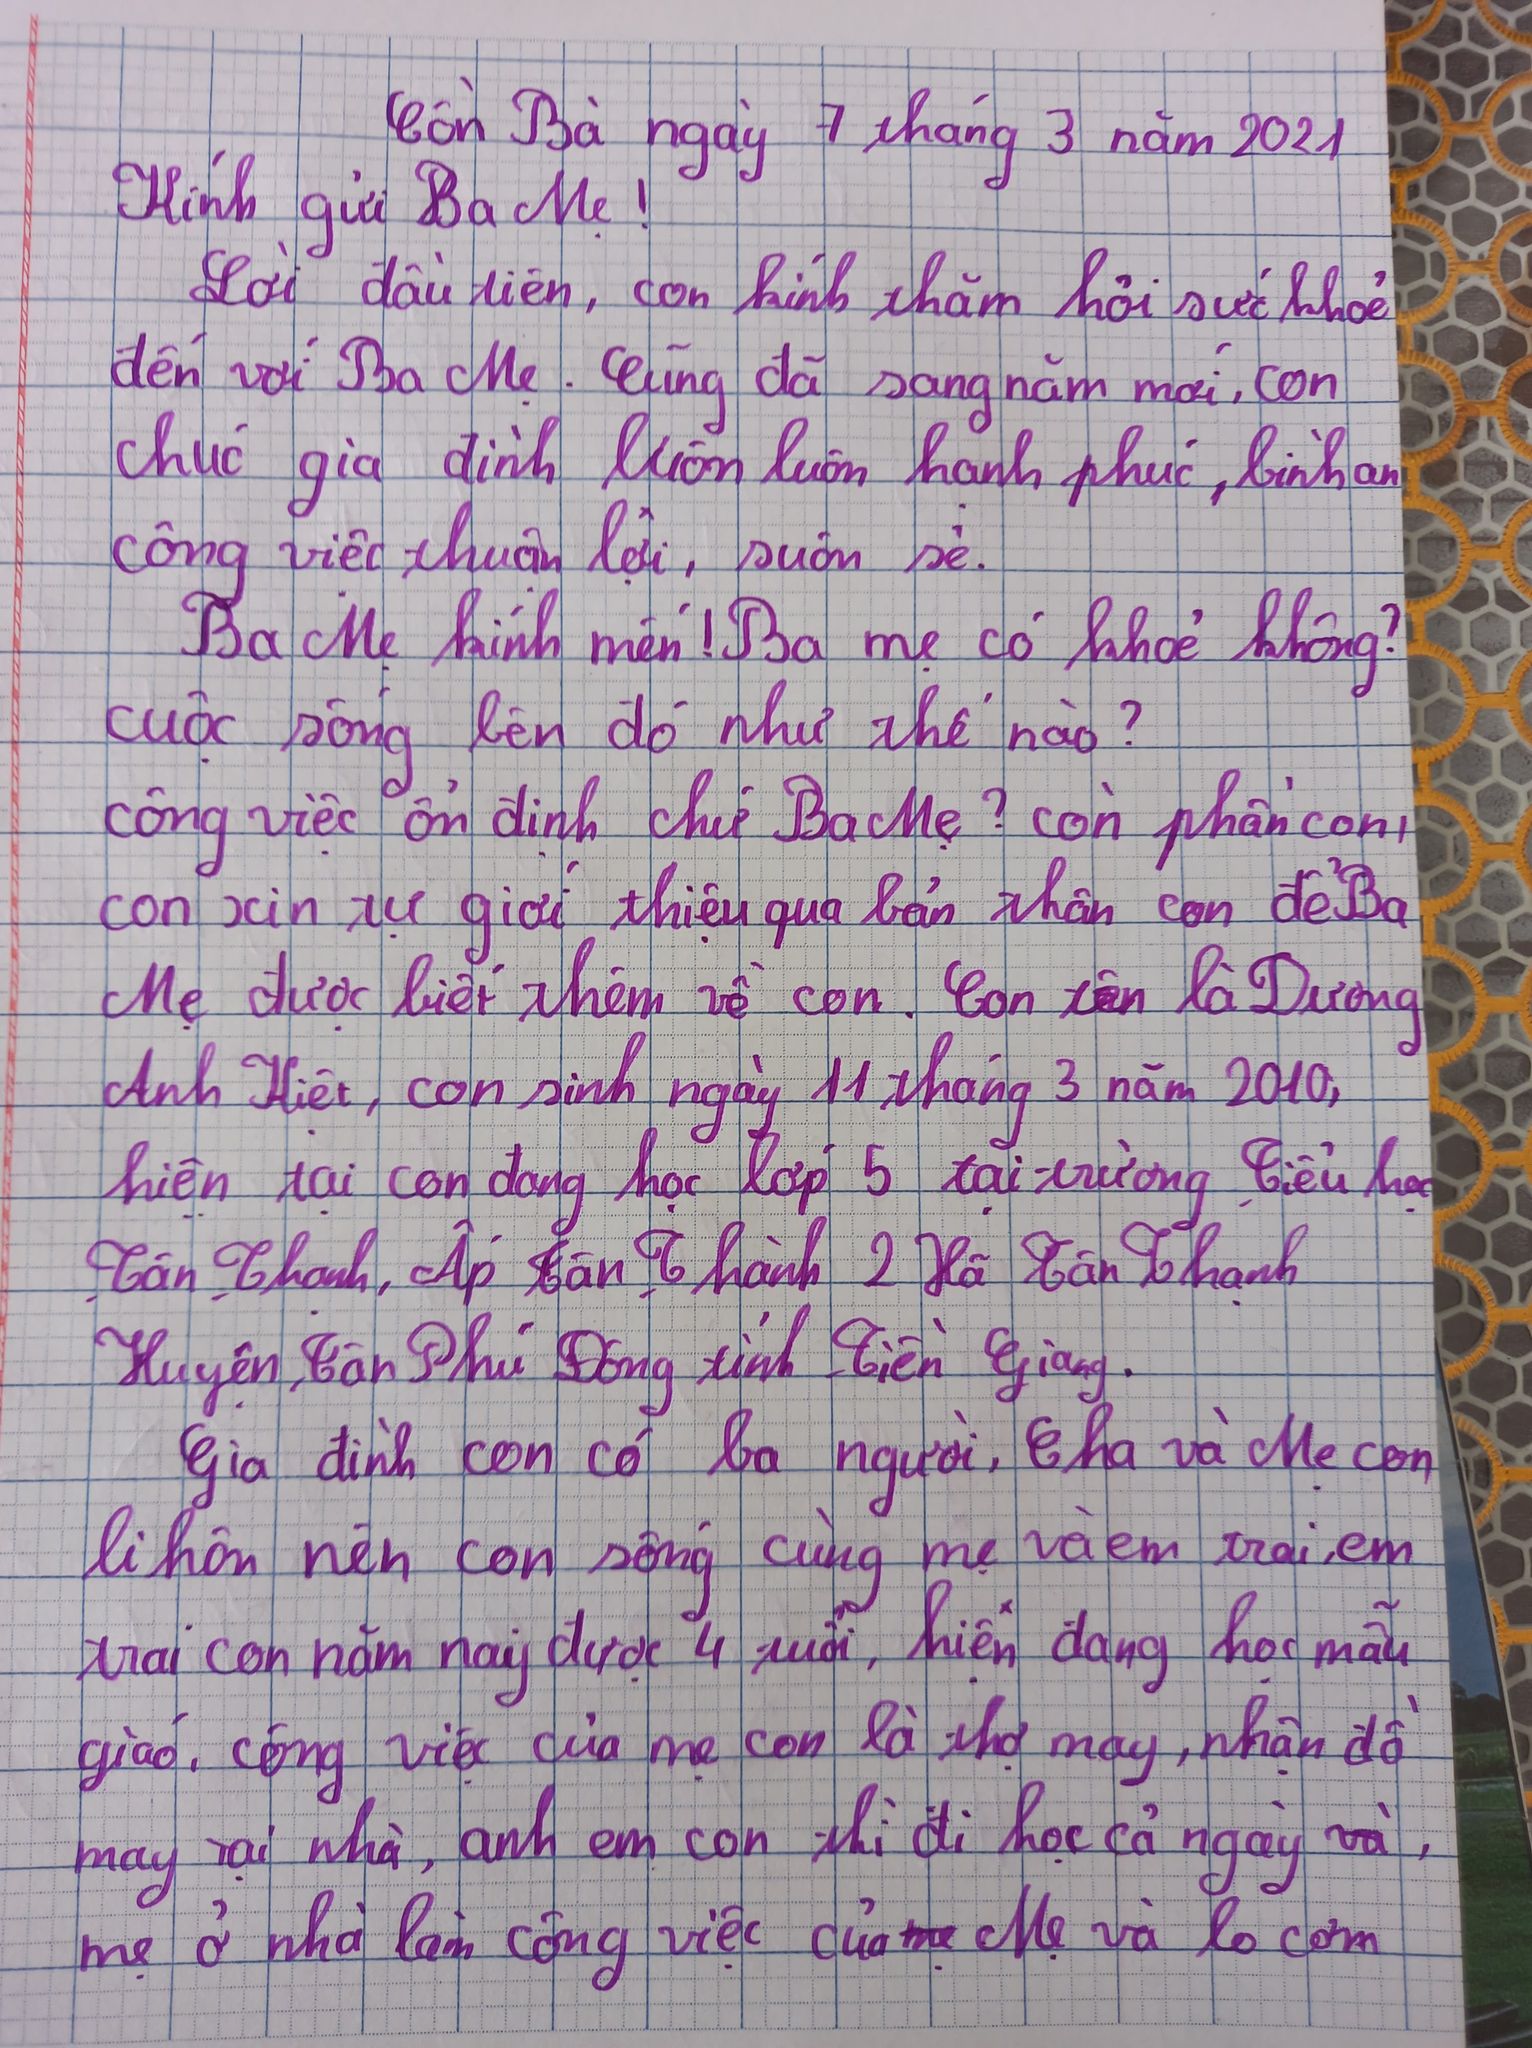 Cồn Bà ngày 7 tháng 3 năm 2021
Kính gửi Ba Mẹ!
Lời đầu tiên, con kính thăm hỏi sức khoẻ
đến với Ba Mẹ. Cũng đã sang năm mới, con
chúc gia đình luôn luôn hạnh phúc, bình an
công việc thuận lợi, suôn sẻ.
Ba Mẹ kính mến! Ba mẹ có khoẻ không?
cuộc sống bên đó như thế nào?
công việc ổn định chứ Ba Mẹ? còn phần con,
con xin tự giới thiệu qua bản thân con để Ba
Mẹ được biết thêm về con. Con tên là Dương
Anh Kiệt, con sinh ngày 11 tháng 3 năm 2010,
hiện tại con đang học lớp 5 tại trường Tiểu học
Tân Thạnh, Ấp Tân Thành 2 Xã Tân Thạnh
Huyện Tân Phú Đông tỉnh Tiền Giang.
Gia đình con có ba người, Cha và Mẹ con
li hôn nên con sống cùng mẹ và em trai, em
trai con năm nay được 4 tuổi, hiện đang học mẫu
giáo, công việc của mẹ con là thợ may, nhận đồ
may tại nhà, anh em con thì đi học cả ngày và,
mẹ ở nhà làm công việc của Mẹ và lo cơm